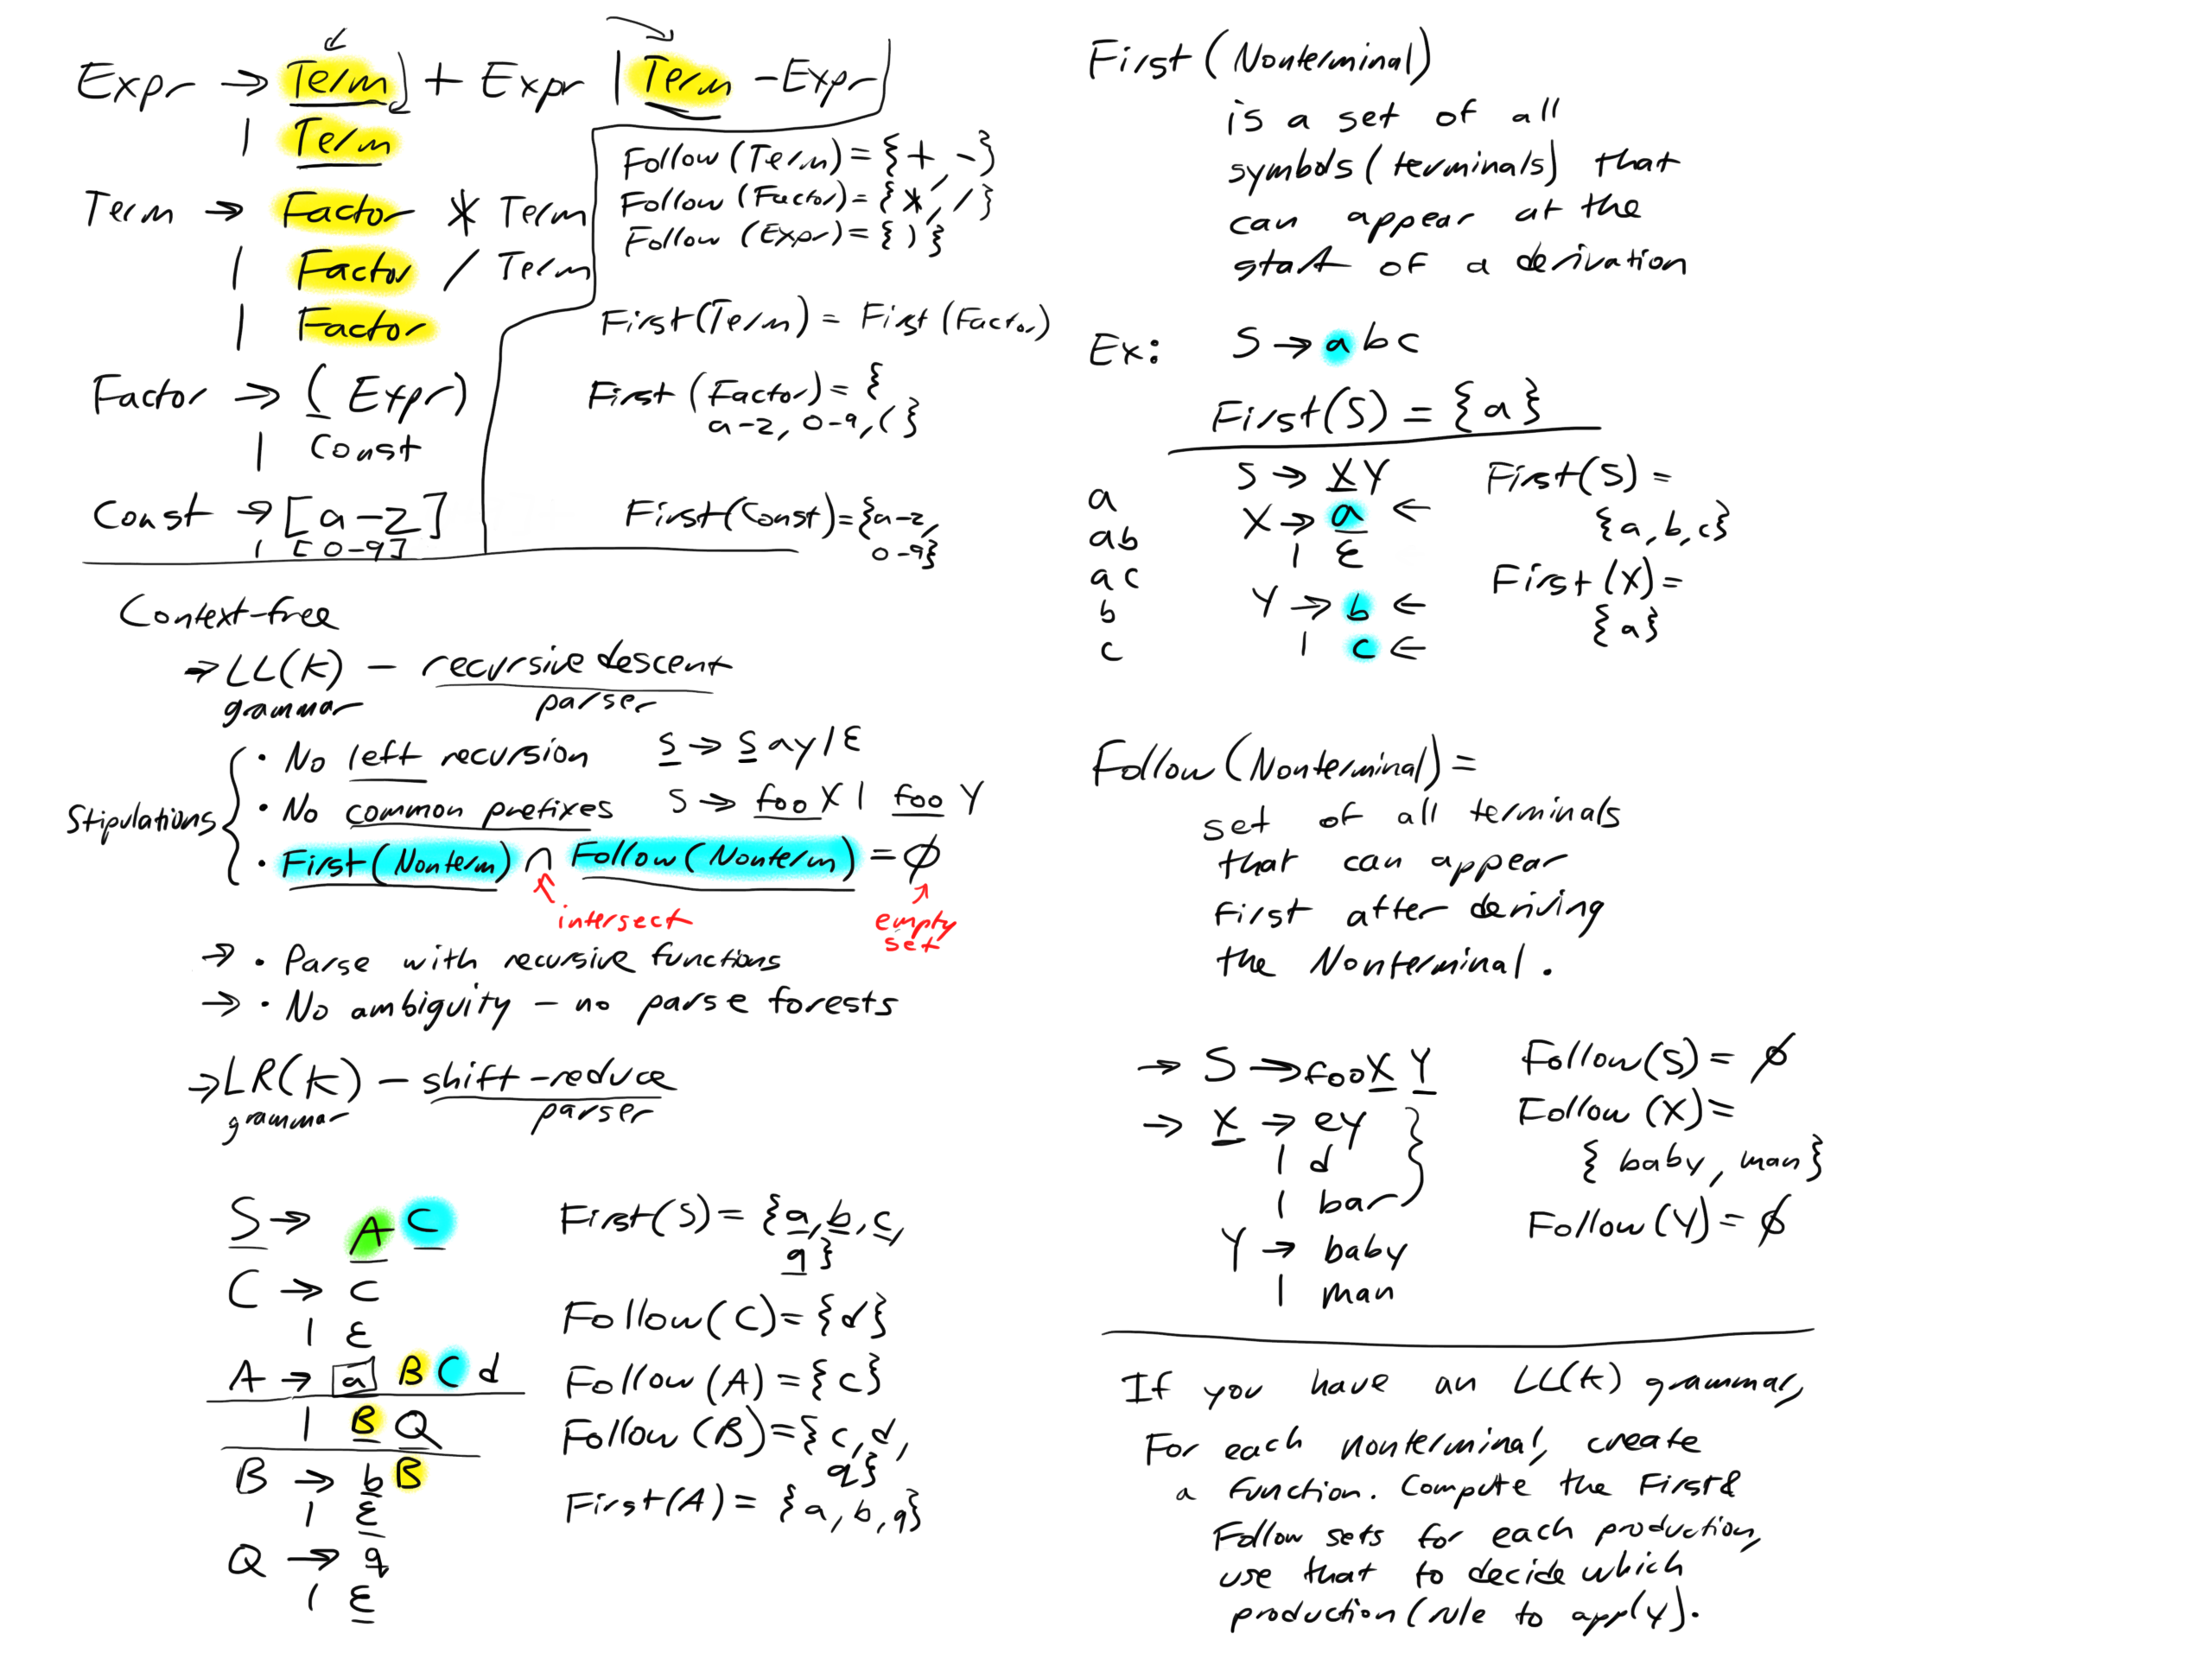 Expr → Term + Expr | Term - Expr
| Term
Term → Factor * Term
| Factor / Term
| Factor
Factor → ( Expr )
| Const
Const → [a-z]
| [0-9]
Follow (Term) = {+, -}
Follow (Factor) = {*, /}
Follow (Expr) = { ) }
First(Term) = First (Factor)
First (Factor) = {
a-z, 0-9, ( }
First(Const) = {a-z,
0-9}
Context-free
→ LL(k) - recursive descent
grammar parser
Stipulations
• No left recursion S → S ay | ε
• No common prefixes S → foo X | foo Y
• First(Nonterm) ∩ Follow(Nonterm) = ∅
intersect empty
set
→ • Parse with recursive functions
→ • No ambiguity - no parse forests
→ LR(k) - shift-reduce
grammar parser
S → A C
C → c
| ε
A → a B C d
| B Q
B → b B
| ε
Q → q
| ε
First(S) = {a, b, c,
q}
Follow(C) = {d}
Follow (A) = {c}
Follow (B) = {c, d,
q}
First(A) = {a, b, q}
First (Nonterminal)
is a set of all
symbols (terminals) that
can appear at the
start of a derivation
Ex: S → a b c
First(S) = {a}
S → X Y
X → a ←
| ε
Y → b ←
| c ←
a
ab
ac
b
c
First(S) =
{a, b, c}
First (X) =
{a}
Follow (Nonterminal) =
set of all terminals
that can appear
first after deriving
the Nonterminal.
→ S → foo X Y
→ X → ey
| d
| bar
Y → baby
| man
Follow(S) = ∅
Follow (X) =
{ baby, man}
Follow (Y) = ∅
If you have an LL(k) grammar,
For each nonterminal, create
a function. Compute the First &
Follow sets for each production,
use that to decide which
production (rule to apply).